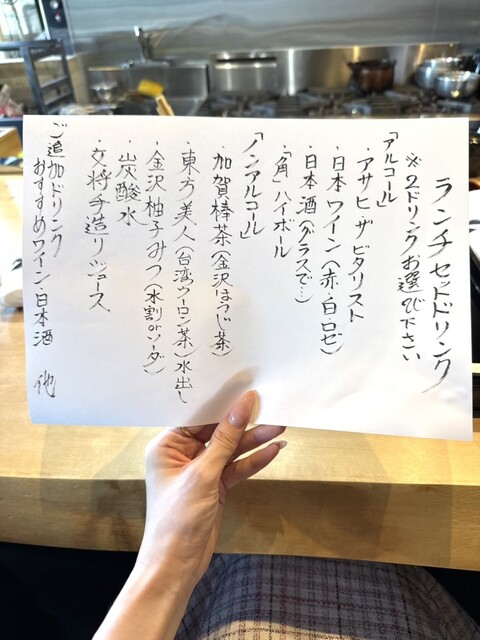 ランチセットドリンク
※2ドリンクお選び下さい
「アルコール」
・アサヒ・ザ・ビタリスト
・日本ワイン(赤・白・ロゼ)
・日本酒(グラスで…)
・「角」ハイボール
「ノンアルコール」
・加賀棒茶(金沢ほうじ茶)
・東方美人(台湾ウーロン茶)水出し
・金沢柚子みつ(水割orソーダ)
・炭酸水
・女将手造りジュース
ご追加ドリンク
おすすめワイン・日本酒 他